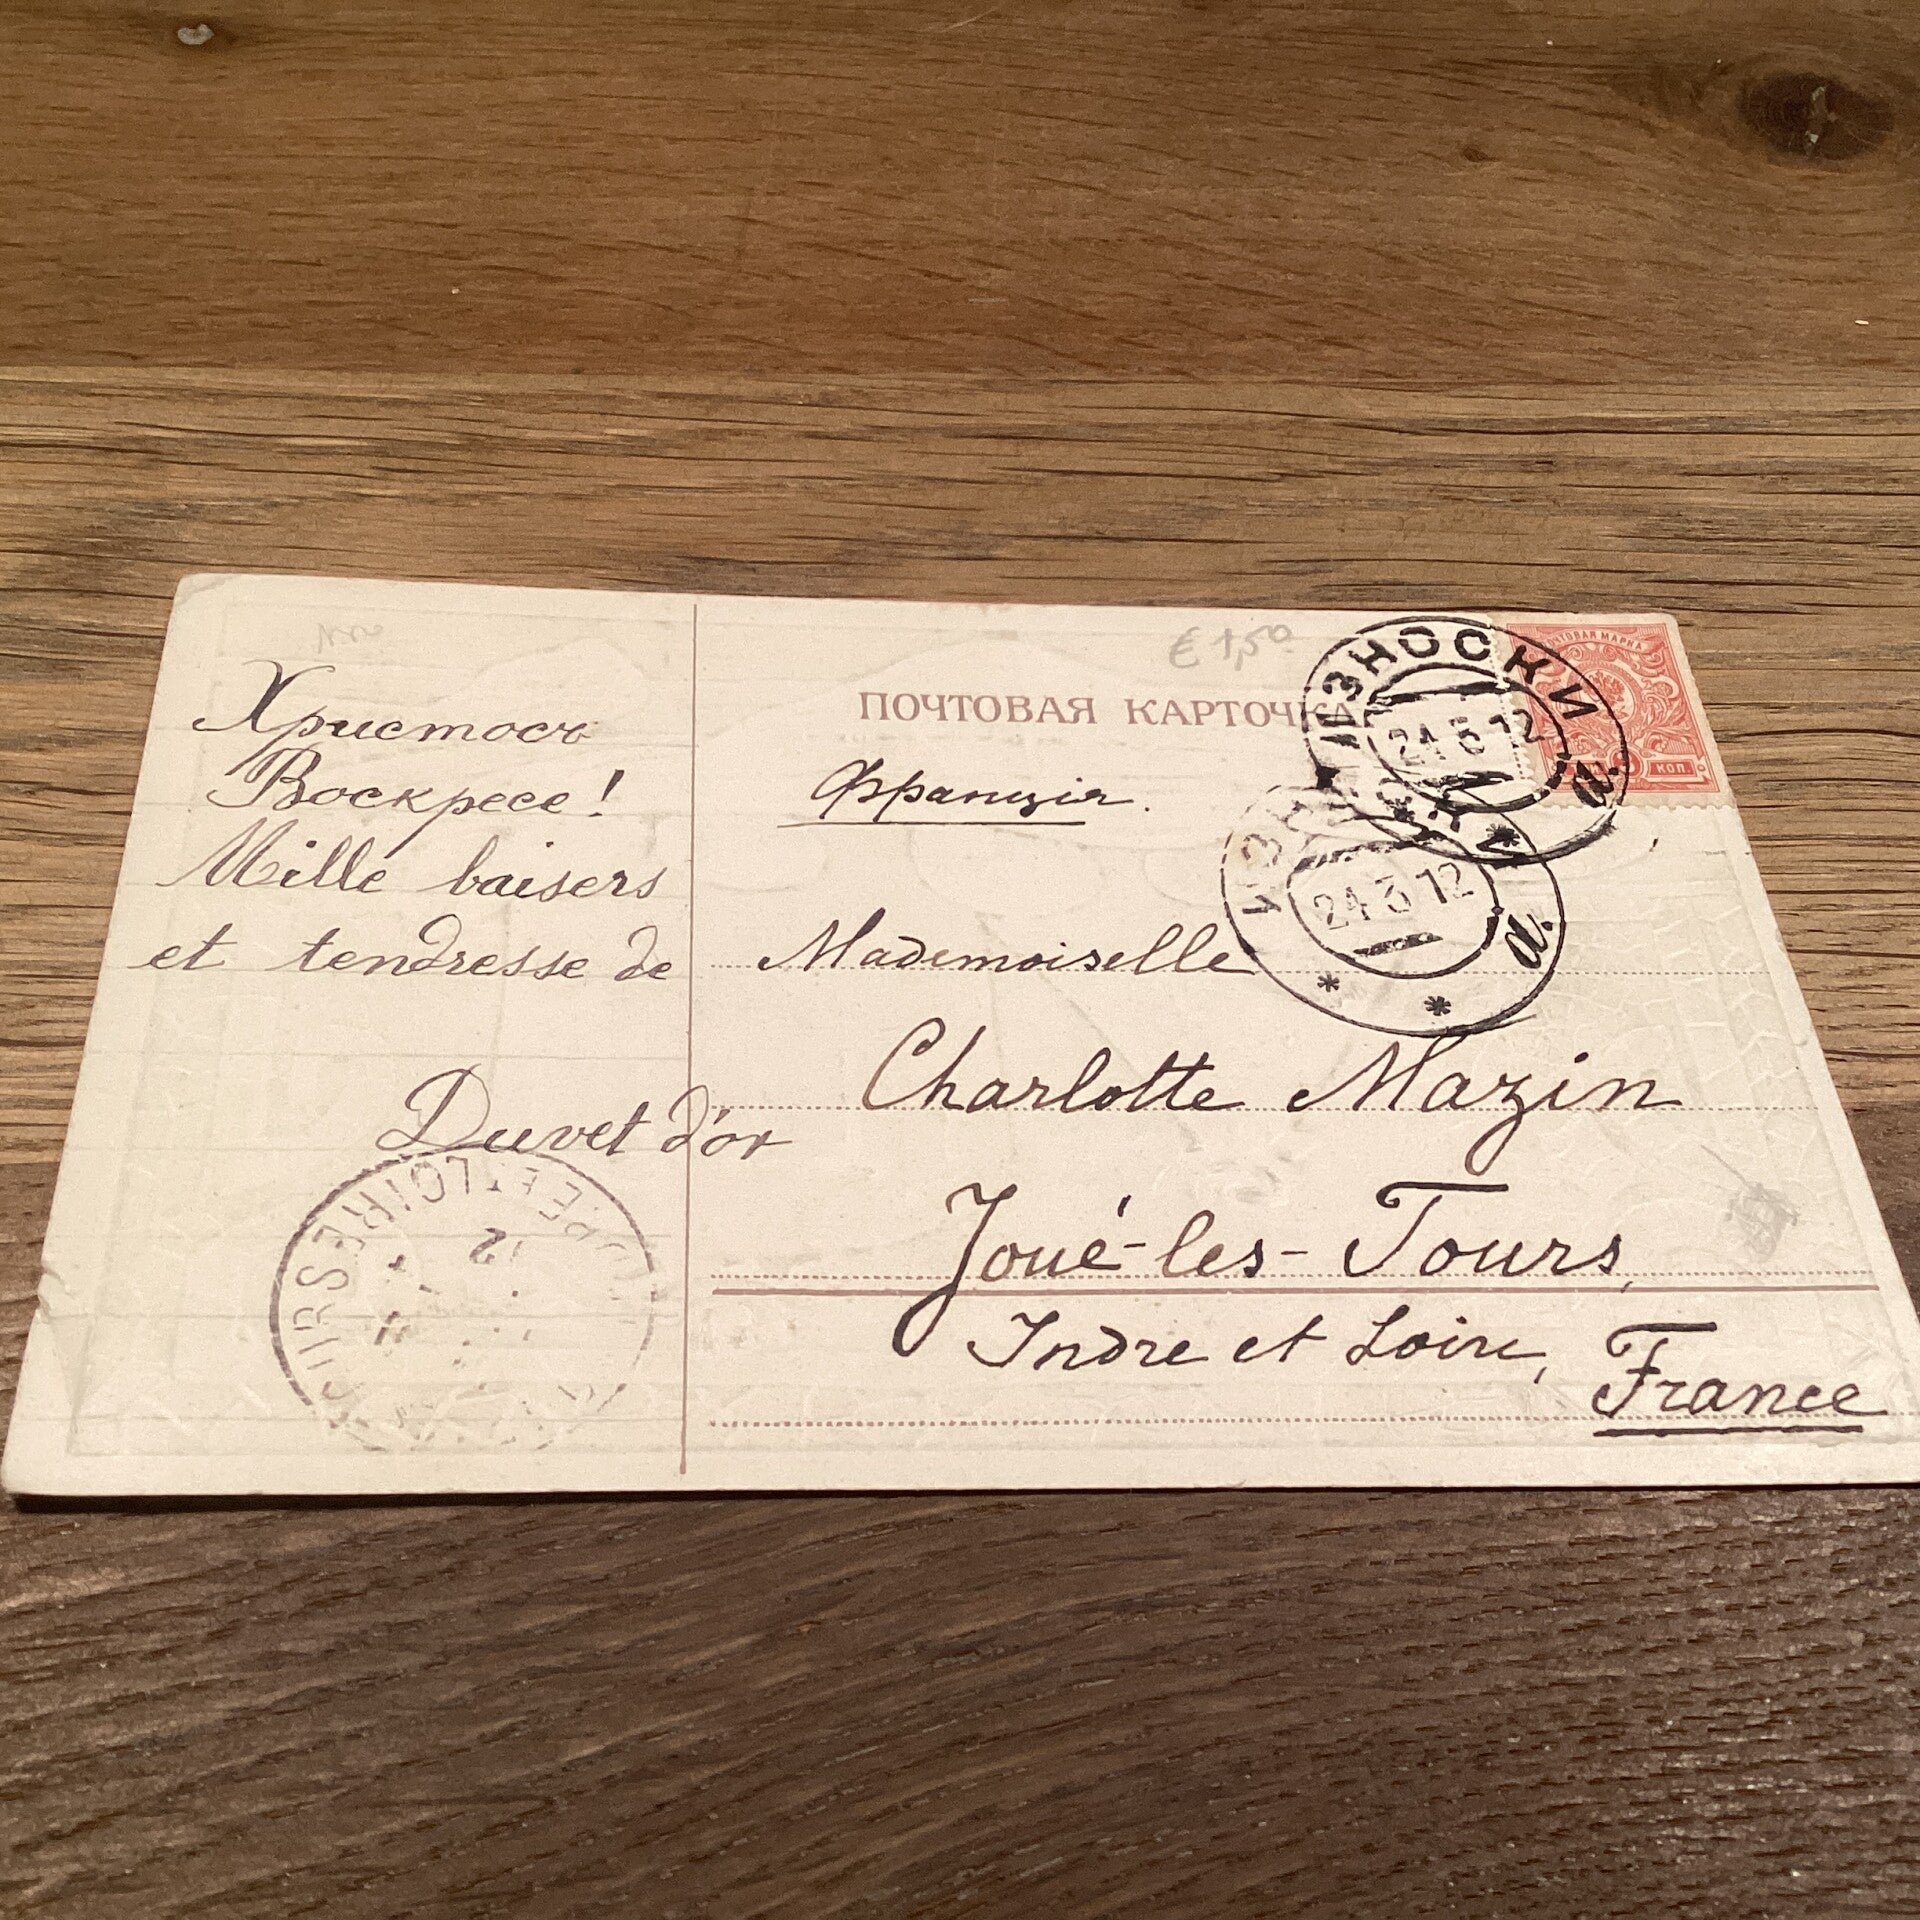 Христосъ
Воскресе!
Mille baisers
et tendresse de
Duvet d'or
€ 1,50
ПОЧТОВАЯ КАРТОЧКА
Франція.
Mademoiselle
Charlotte Mazin
Joué-les-Tours,
Indre et Loire,
France
ПОЧТОВАЯ МАРКА
КОП
ИЗНОСКИ
24 3 12
а.
ИЗНОСКИ
24 3 12
а.
LOIRE
12